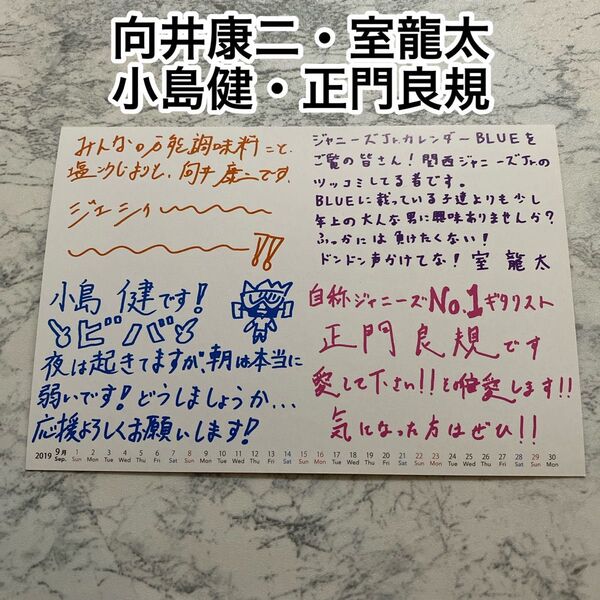 向井康二・室龍太
小島健・正門良規
みんなの万能調味料こと
塩こうじおうじ、向井康二です。
ジェシィ〜〜〜
〜〜〜〜!!
ジャニーズJr.カレンダーBLUEを
ご覧の皆さん!関西ジャニーズJr.の
ツッコミしてる者です。
BLUEに載っている子達よりも少し
年上の大人な男に興味ありませんか?
ふっかには負けたくない!
ドンドン声かけてな!室龍太
小島健です!
ビバ
夜は起きてますが、朝は本当に
弱いです!どうしましょうか...
応援よろしくお願いします!
自称ジャニーズNo.1ギタリスト
正門良規です
愛して下さい!!と俺愛します!!
気になった方はぜひ!!
2019 9月 Sep. 1 Sun 2 Mon 3 Tue 4 Wed 5 Thu 6 Fri 7 Sat 8 Sun 9 Mon 10 Tue 11 Wed 12 Thu 13 Fri 14 Sat 15 Sun 16 Mon 17 Tue 18 Wed 19 Thu 20 Fri 21 Sat 22 Sun 23 Mon 24 Tue 25 Wed 26 Thu 27 Fri 28 Sat 29 Sun 30 Mon